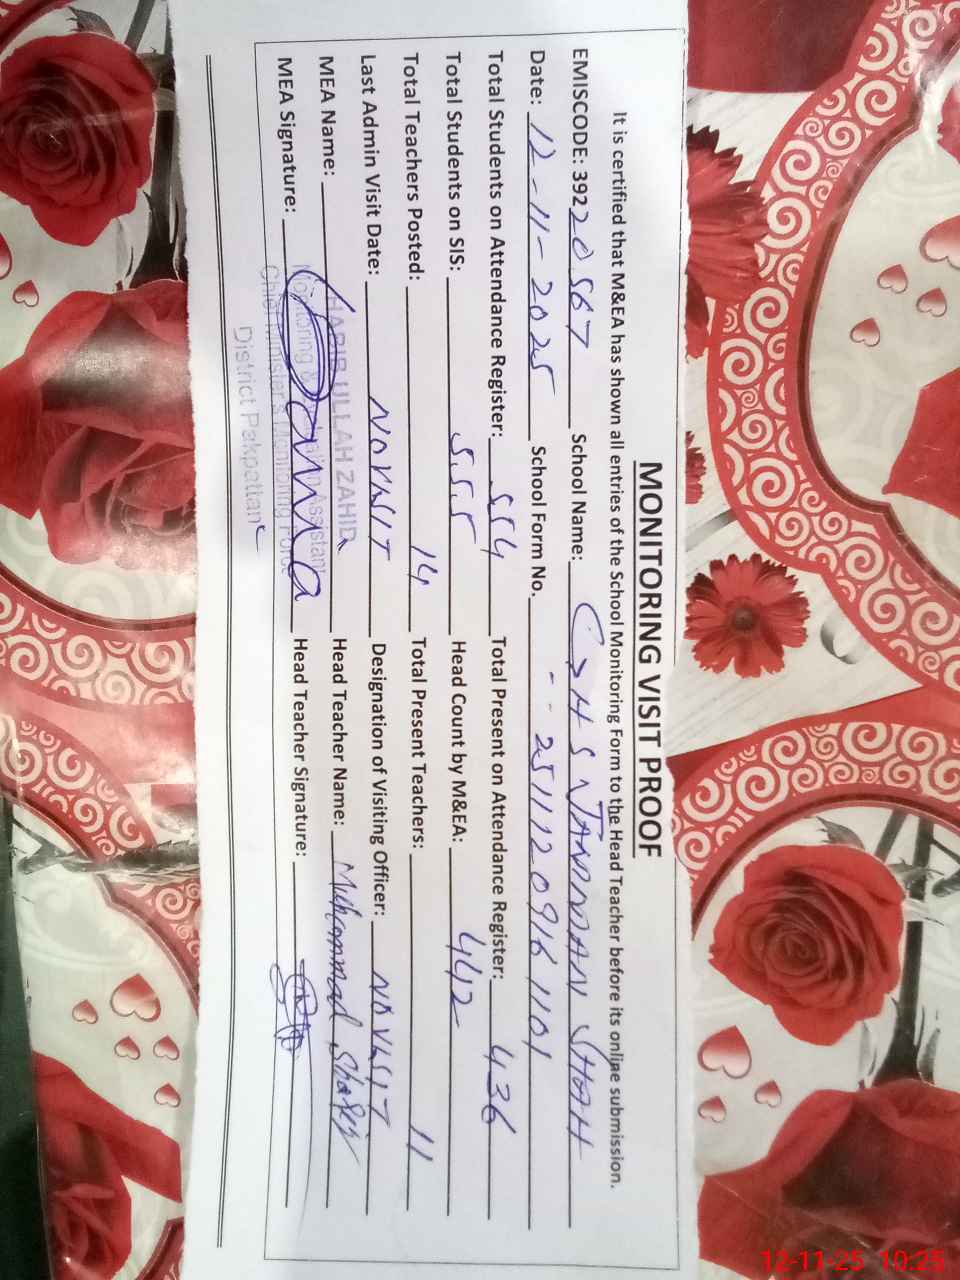 MONITORING VISIT PROOF
It is certified that M&EA has shown all entries of the School Monitoring Form to the Head Teacher before its online submission.
EMISCODE: 39220567 School Name: GHS JANNAN SHAH
Date: 12-11-2025 School Form No. -- 2511120916 1101
Total Students on Attendance Register: 554 Total Present on Attendance Register: 436
Total Students on SIS: 555 Head Count by M&EA: 442
Total Teachers Posted: 14 Total Present Teachers: 11
Last Admin Visit Date: NOVISIT Designation of Visiting Officer: NOVISIT
MEA Name: HABIB ULLAH ZAHID Head Teacher Name: Muhammad
MEA Signature: Head Teacher Signature:
Monitoring & Assistant
Chief Minister's Monitoring Force
District Pakpattan
12-11-25 10:25